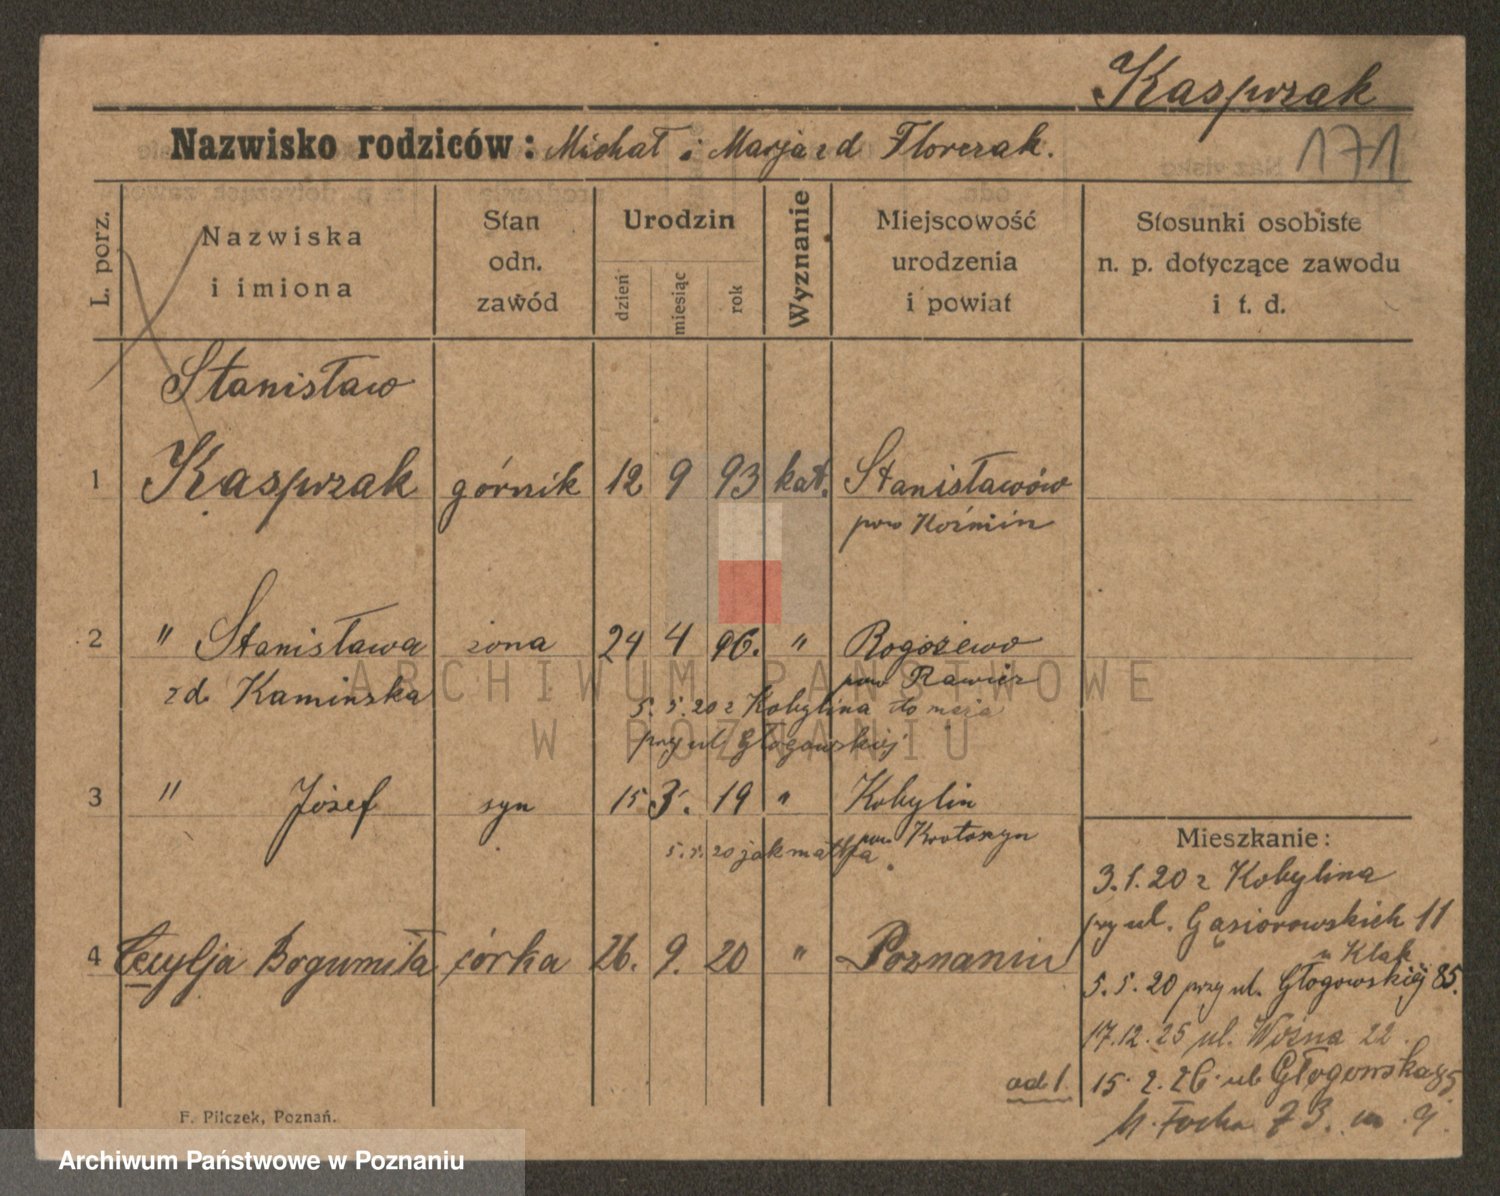 Kasprzak
171
Nazwisko rodziców: Michał i Marja zd Florczak.
L. porz.
Nazwiska
i imiona
Stan
odn.
zawód
Urodzin
dzień
miesiąc
rok
Wyznanie
Miejscowość
urodzenia
i powiat
Stosunki osobiste
n. p. dotyczące zawodu
i t. d.
Stanisław
1 Kasprzak górnik 12 9 93 kat. Stanisławów
pow Koźmin
2 " Stanisława żona 24 4 96. " Rogożewo
zd. Kamińska pow Rawicz
5. 5. 20 z Kobylina do męża
przy ul Głogowskiej
3 " Józef syn 15 3. 19 " Kobylin
pow. Krotoszyn
5. 5. 20 jak matka
4 Cecylja Bogumiła córka 26. 9. 20 " Poznaniu
Mieszkanie:
3.1.20 z Kobylina
przy ul. Gąsiorowskich 11
u Klak
5. 5. 20 przy ul. Głogowskiej 85.
17.12.25 ul. Woźna 22.
od 1. 15. 2. 26. ul Głogowska 85
M. Focha 73. m 9.
F. Pilczek, Poznań.
ARCHIWUM PAŃSTWOWE
W POZNANIU
Archiwum Państwowe w Poznaniu